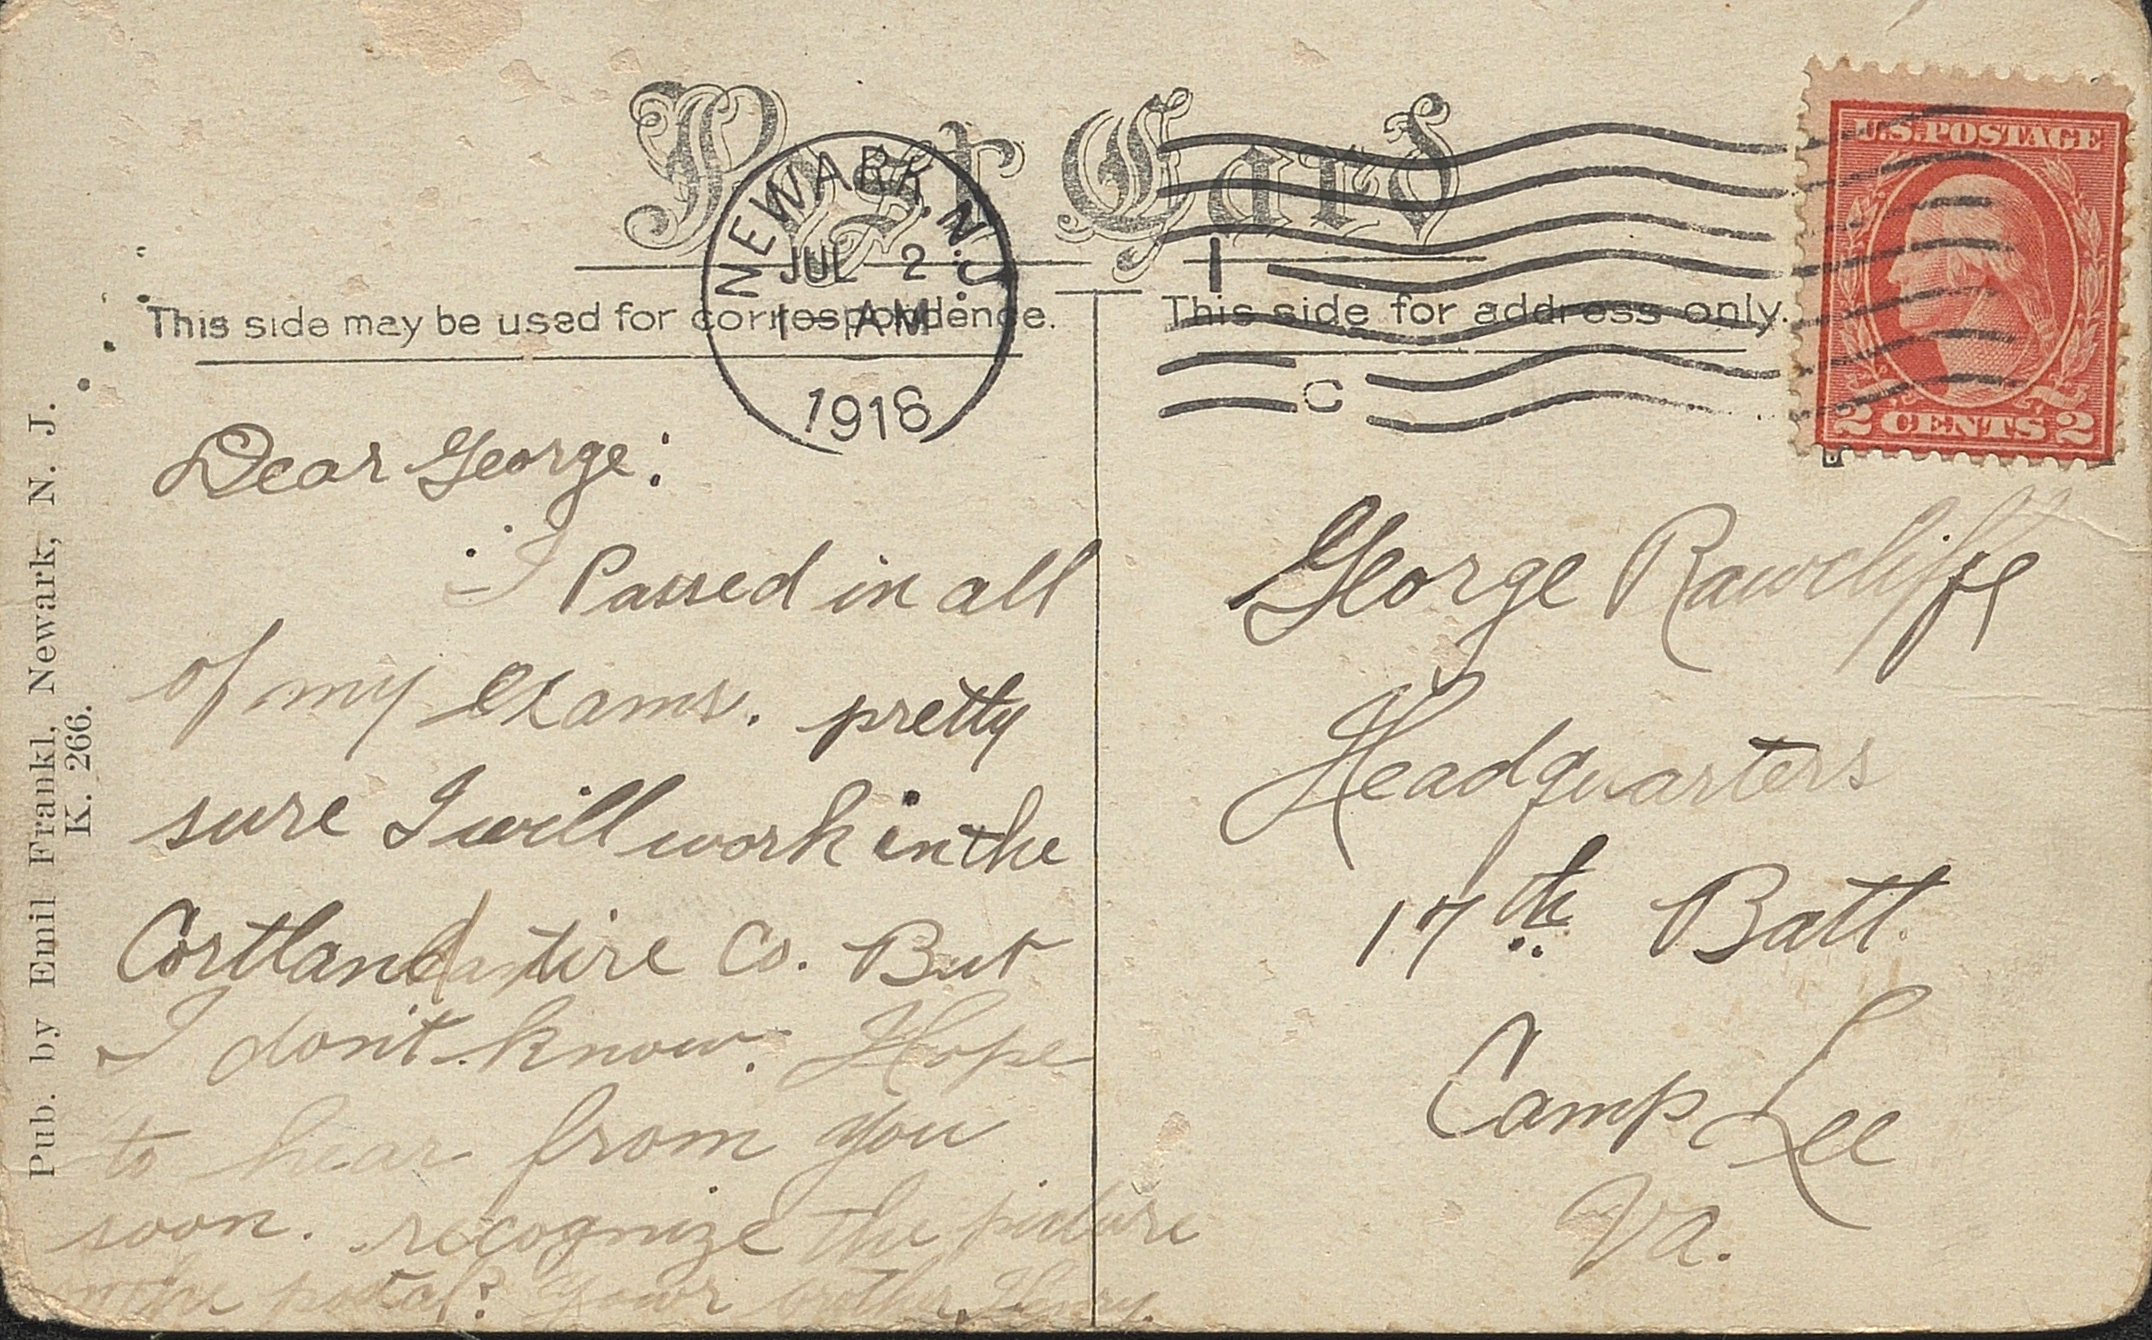 Post Card
NEWARK, N.J.
JUL 2
1 - AM
1918
1
C
U.S. POSTAGE
2 CENTS 2
This side may be used for correspondence.
This side for address only.
Pub. by Emil Frankl, Newark, N. J.
K. 266.
Dear George:
I Passed in all
of my exams. pretty
sure I will work in the
Cortland tire Co. But
I don't know. Hope
to hear from you
soon. recognize the picture
on the postal? Your brother, Henry.
George Rawcliffe
Headquarters
17th Batt.
Camp Lee
Va.